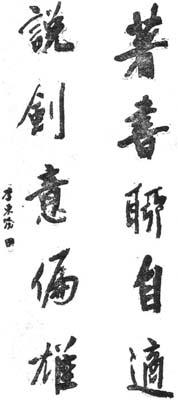 著書聊自適
説劍意偏雄
李東陽